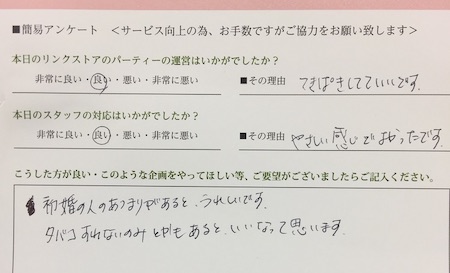 ■簡易アンケート　＜サービス向上の為、お手数ですがご協力をお願い致します＞
本日のリンクストアのパーティーの運営はいかがでしたか？
非常に良い・良い・悪い・非常に悪い　■その理由　てきぱきしてていいです。
本日のスタッフの対応はいかがでしたか？
非常に良い・良い・悪い・非常に悪い　■その理由　やさしい感じでよかったです。
こうした方が良い・このような企画をやってほしい等、ご要望がございましたらご記入ください。
初婚の人のあつまりがあると、うれしいです。
タバコすわないのみとかもあると、いいなって思います。